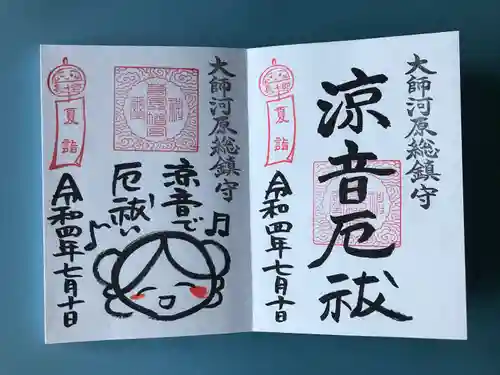 大師河原総鎮守
涼音厄祓
令和四年七月十日
夏詣
大師河原総鎮守
涼音で
厄祓い
令和四年七月十日
夏詣